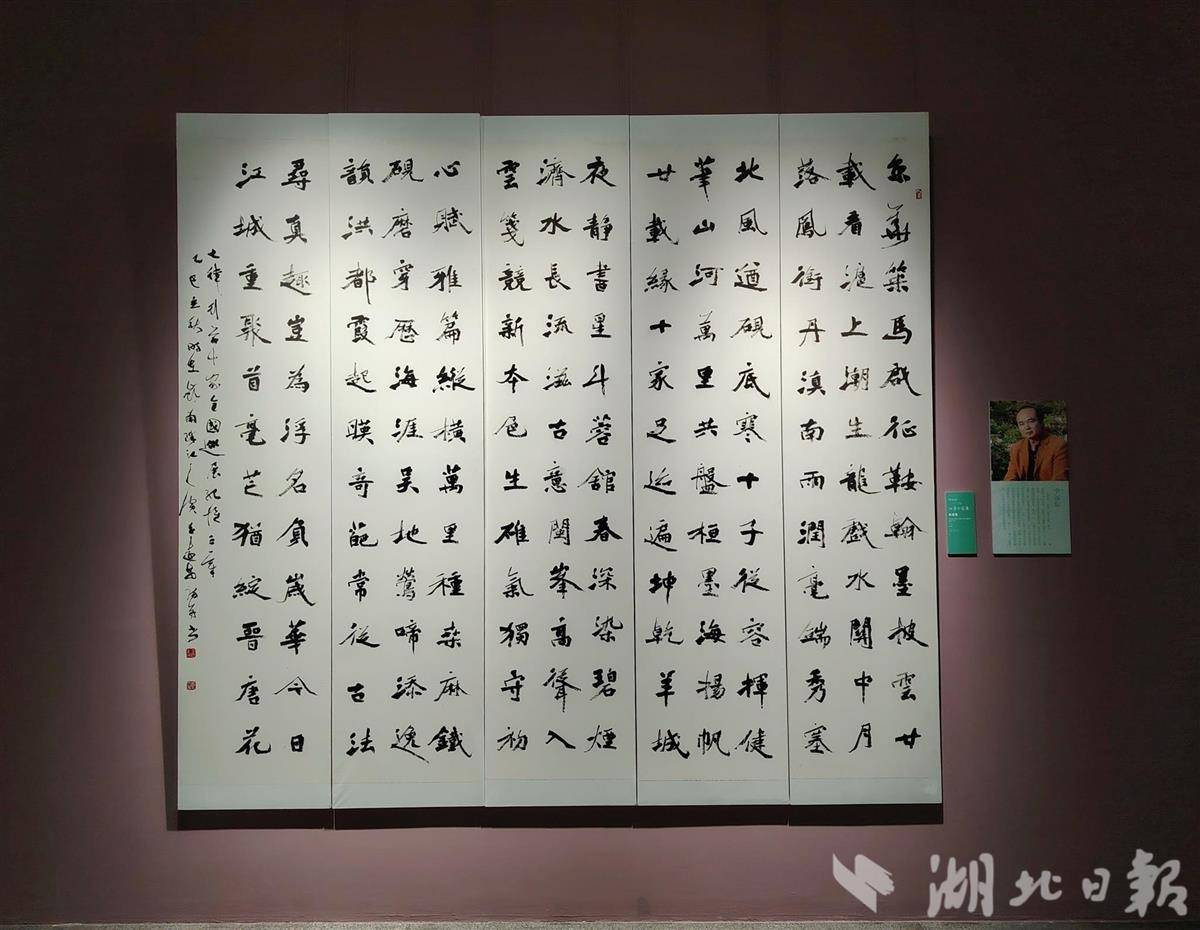 京華策馬啟征鞍翰墨披雲廿
載看滬上潮生龍戲水關中月
落鳳銜丹滇南雨潤毫端秀塞
北風遒硯底寒十子從容揮健
筆山河萬里共盤桓墨海揚帆
廿載緣十家足迹遍坤乾羊城
夜靜書星斗蓉館春深染碧煙
濟水長流滋古意閩峯高聳入
雲箋競新本色生雄氣獨守初
心賦雅篇縱橫萬里種桑麻鐵
硯磨穿歷海涯吳地鶯啼添逸
韻洪都霞起暎奇葩常從古法
尋真趣豈為浮名負歲華今日
江城重聚首毫芒猶綻晉唐花
七律 十家全國巡展 三章
乙巳立秋
湖北日報